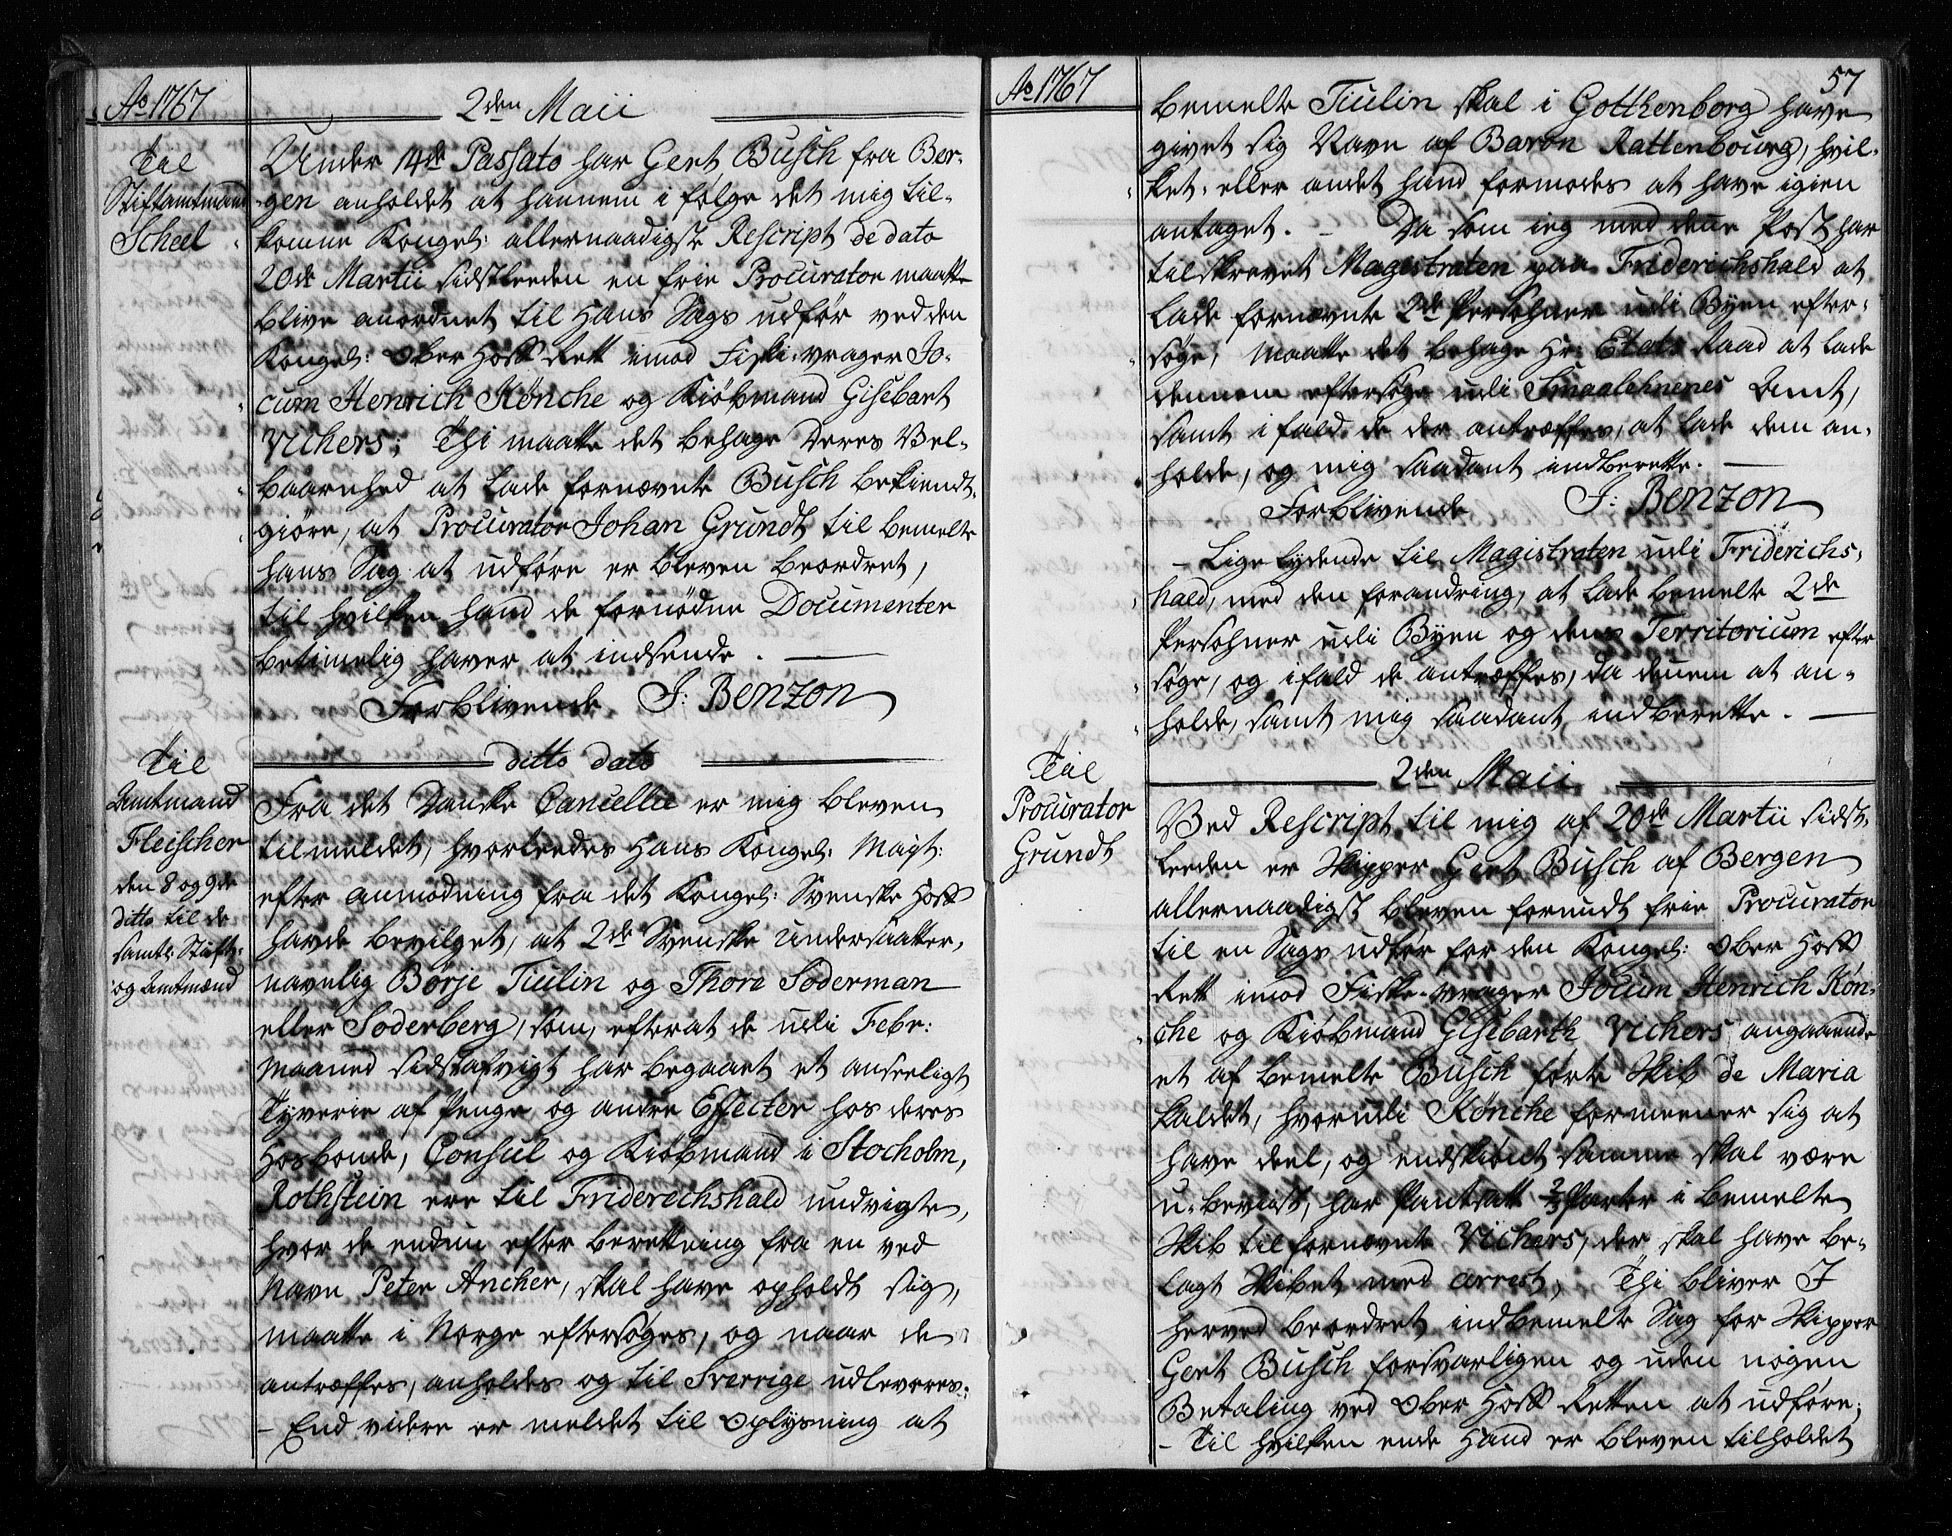 Ao 1767
2den Maii
Til
Stiftamtmand
Scheel
Under 14de Passato har Gert Busch fra Ber-
gen anholdet at hannem i følge det mig til-
komne Kongel: allernaadigste Rescript de dato
20de Martii sidstleeden en frie Procurator maatte
blive anordnet til Hans Sags udför ved den
Kongel: Ober Hoff Rett imod Fiske-vrager Jo-
cum Henrich Könche og Kiöbmand Gisebart
Vichers; Thi maatte det behage Deres Vel-
baarenhed at lade fornævnte Busch bekiendt-
giöre, at Procurator Johan Grundt til bemelte
hans Sag at udföre er bleven beordret,
til hvilken hand de fornödne Documenter
betimelig haver at indsende.
Forblivende J: Benzon
ditto dato
Til
Amtmand
Fleischer
den 8 og 9de
ditto til de
samtl: Stift-
og Amtmænd
Fra det Danske Cancellie er mig bleven
tilmeldet, hvorleedes Hans Kongel: Mayt:
efter anmodning fra det Kongel: Svenske Hoff
havde bevilget, at 2de Svenske Undersaatter,
navnlig Börje Tiulin og Thore Söderman
eller Söderberg, som, efterat de udi Febr:
Maaned sidstafvigt har begaaet et anseeligt
Tyverie af Penge og andre Effecter hos deres
Hosbonde, Consul og Kiöbmand i Stocholm,
Rothstein ere til Friderichshald undvigte,
hvor de endnu efter beretning fra en ved
Navn Peter Ancher, skal have opholdt sig,
maatte i Norge eftersöges, og naar de
antræffes, anholdes og til Sverrige udleveres:
- End videre er meldet til Oplysning at
Ao 1767
57
bemelte Tiulin skal i Gotthenborg have
givet sig Navn af Baron Rattenbourg, hvil-
ket eller andet hand formodes at have igien
antaget. - Da som ieg med denne Post har
tilskrevet Magistraten paa Friderichshald at
lade fornævnte 2de Persohner udi Byen efter-
söge, Maatte det behage Hr: Etats Raad at lade
dennem eftersöge udi Smaalehnenes Amt,
samt ifald de der antræffes, at lade dem an-
holde, og mig saadant indberette.
Forblivende J: Benzon
- Lige lydende til Magistraten udi Friderichs-
hald, med den forandring, at lade bemelte 2de
Persohner udi Byen og dens Territorium efter
söge, og ifald de antræffes, da dennem at an-
holde, samt mig saadant indberette.
2den Maii
Til
Procurator
Grundt
Ved Rescript til mig af 20de Martii sidst-
leeden er Skipper Gert Busch af Bergen
allernaadigst bleven forundt frie Procurator
til en Sags udför for den Kongel: Ober Hoff
Rett imod Fiske-vrager Jocum Henrich Kön-
che og Kiöbmand Gisebarth Vichers angaaende
et af bemelte Busch förte Skib de Maria
kaldet, hvorudi Könche formeener sig at
have deel, og endskiönt samme skal være
u-bevist, har Pantsatt 2/3 Parter i bemelte
Skib til fornævnte Vichers, der skal have be-
lagt Skibet med arrest; Thi bliver I
herved beordret indbemelte Sag for Skipper
Gert Busch forsvarligen og uden nogen
Betaling ved Ober Hoff Retten at udföre;
- Til hvilken ende Hand er bleven tilholdet